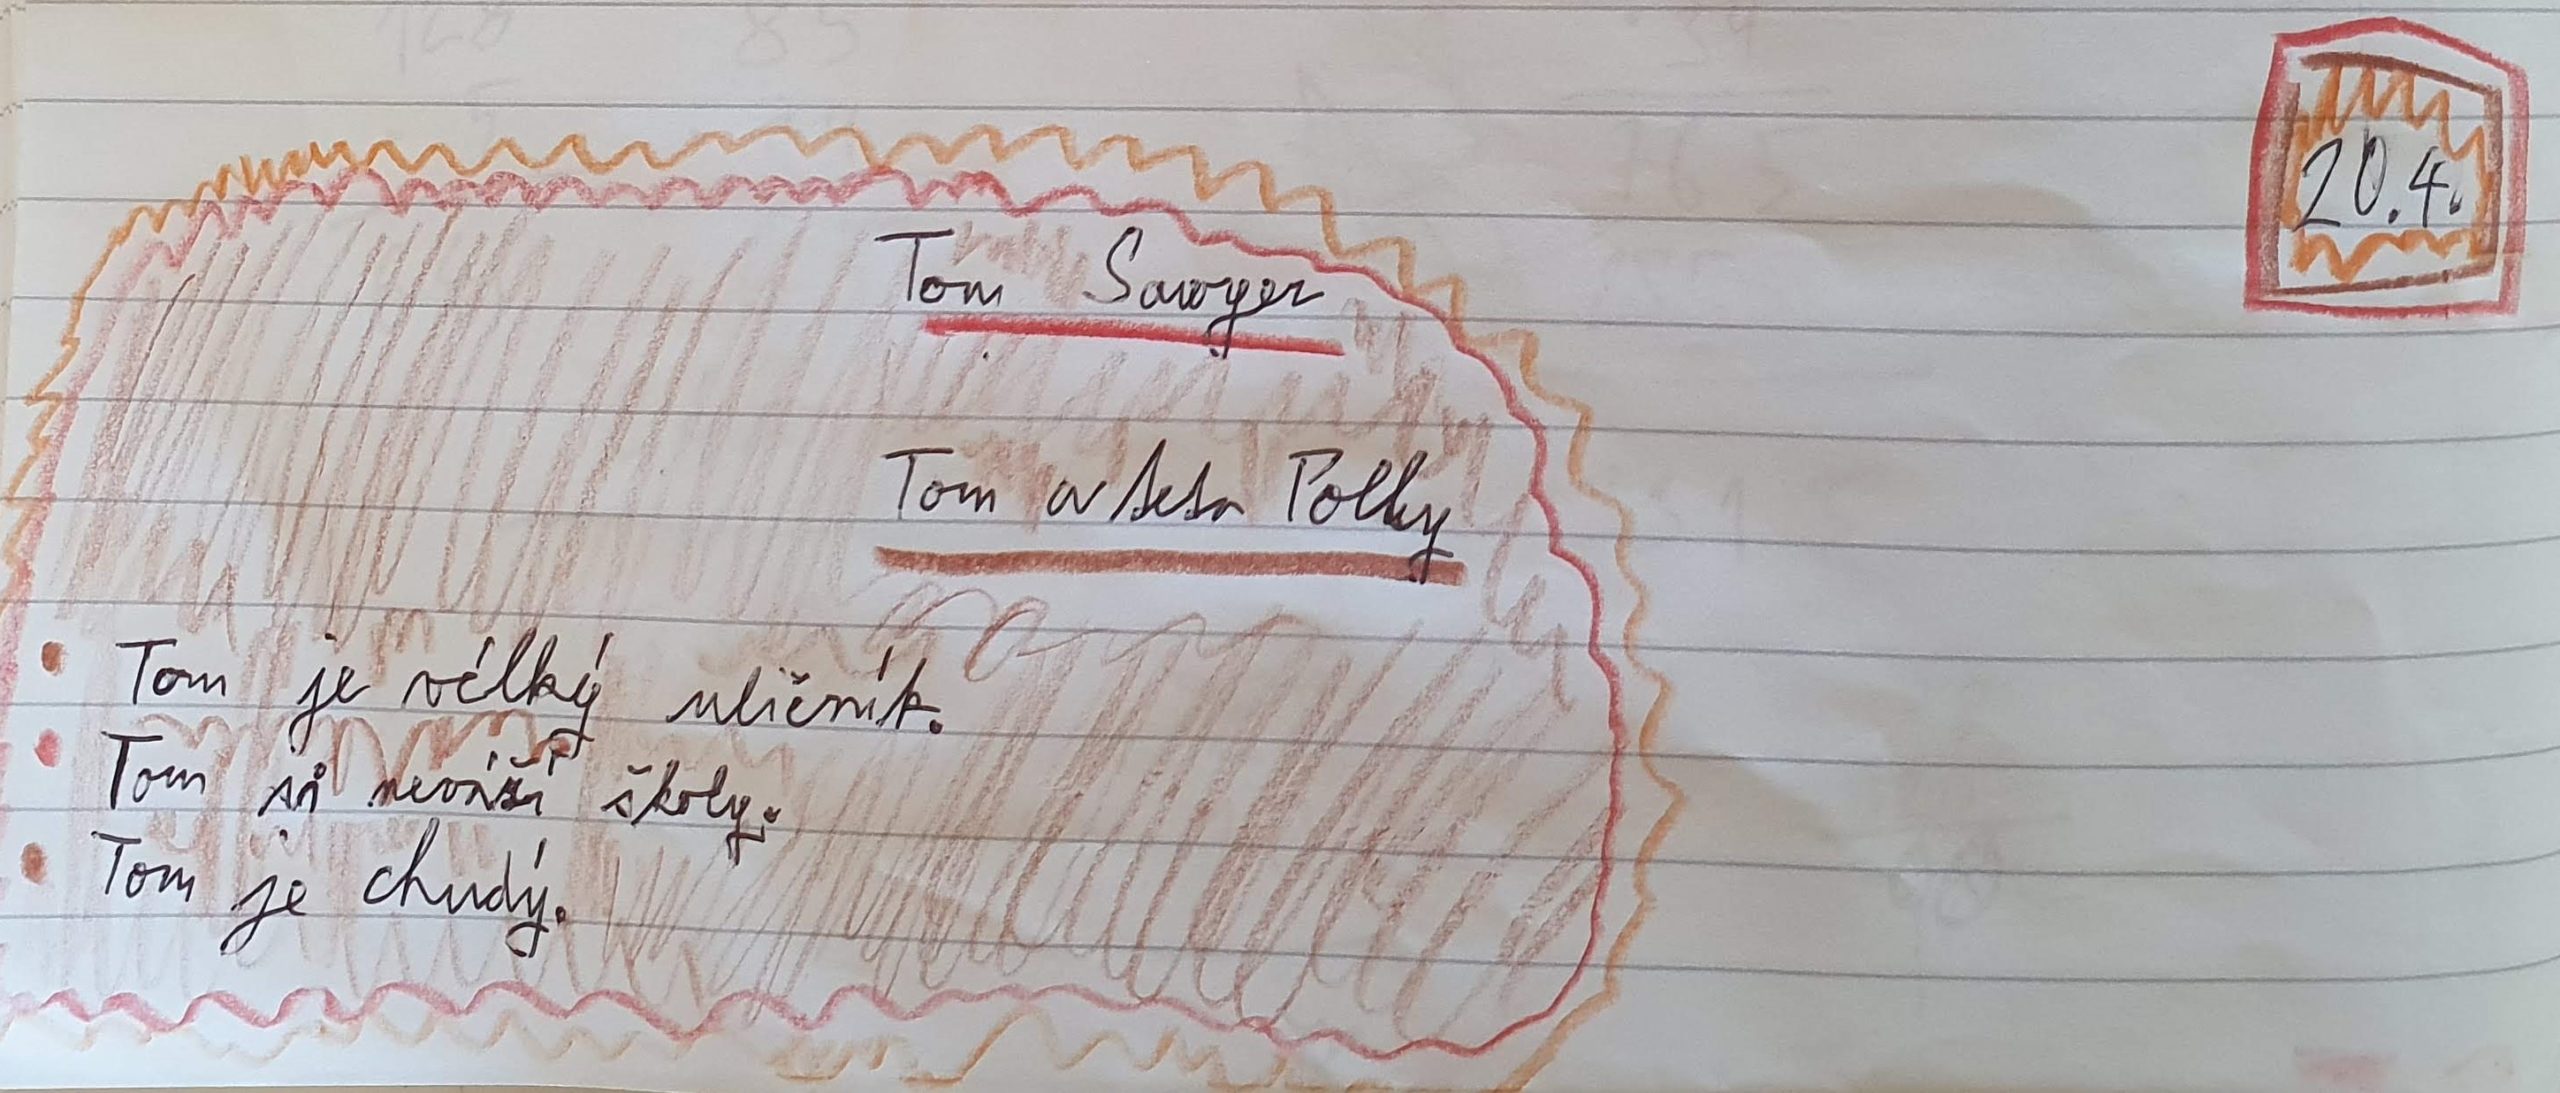 20.4.
Tom Sawyer
Tom a teta Polly
Tom je vélký uličník.
Tom si neváží školy.
Tom je chudý.